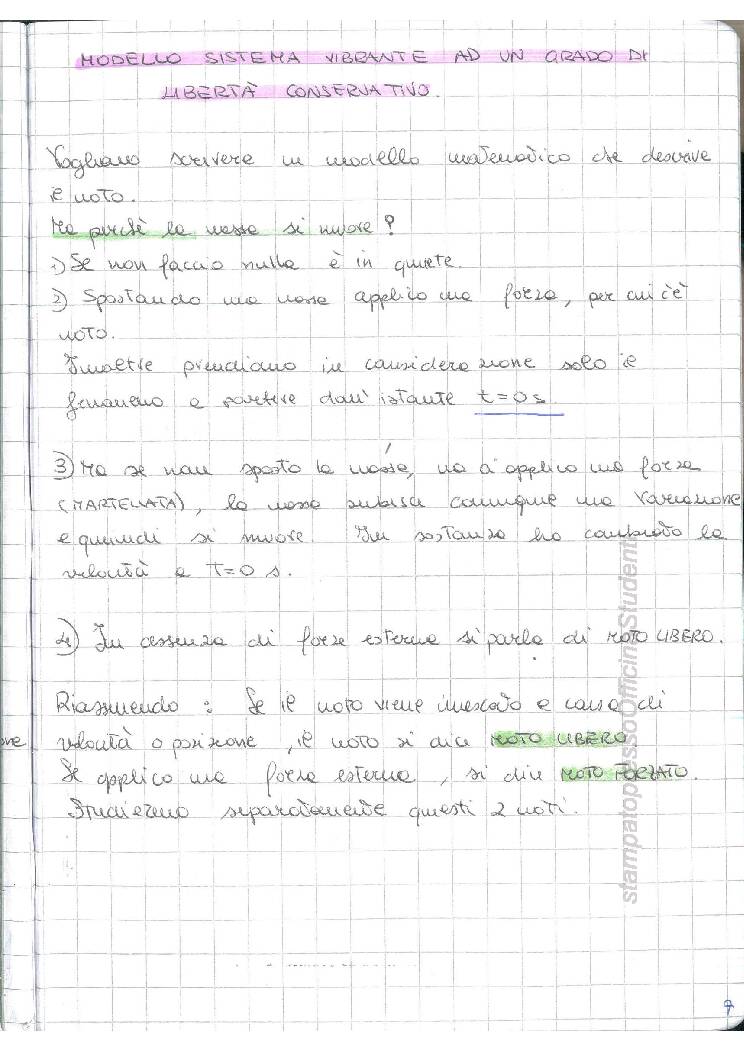 MODELLO SISTEMA VIBRANTE AD UN GRADO DI
LIBERTÀ CONSERVATIVO.
Vogliamo scrivere un modello matematico che descrive
il moto.
Ma perchè la massa si muove?
1) Se non faccio nulla è in quiete.
2) Spostando una massa applico una forza, per cui c'è
moto.
Inoltre prendiamo in considerazione solo il
fenomeno a partire dall'istante t=0 s
3) Ma se non sposto la massa, ma ci applico una forza
(MARTELLATA), la massa subisce comunque una variazione
e quindi si muove. In sostanza ho cambiato la
velocità a t=0 s.
4) In assenza di forze esterne si parla di MOTO LIBERO.
Riassumendo: Se il moto viene innescato a causa di
velocità o posizione, il moto si dice MOTO LIBERO.
Se applico una forza esterna, si dice MOTO FORZATO.
Studieremo separatamente questi 2 moti.
stampatopressoOfficinaStudenti
7